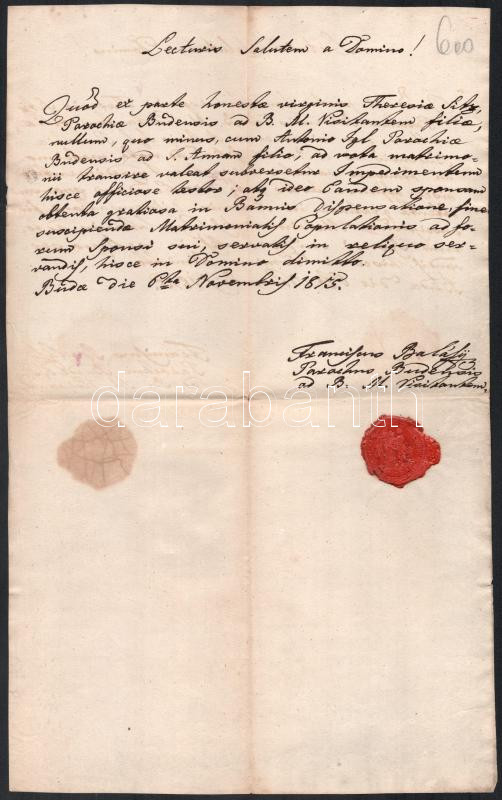 Lecturis Salutem a Domino!
600
Quod ex parte honestæ virginis Theresiæ
Parochiæ Budensis ad B. M. Visitantem filiæ,
nullum, quo minus, cum Antonio Igl Parochiæ
Budensis ad S. Annam filio, ad vota matrimo-
nii transire valeat subversetur Impedimentum
hisce officiose testor; atq ideo Eandem sponsam
obtenta gratiosa in Bannis Dispensatione, fine
suscipiendæ Matrimonialis Copulationis ad fo-
rum Sponsi sui, servatis in reliquo ser-
vandis, hisce in Domino dimitto.
Budæ die 6ta Novembris 1815.
Franciscus Balásy
Parochus Budensis
ad B. M. Visitantem
darabanth